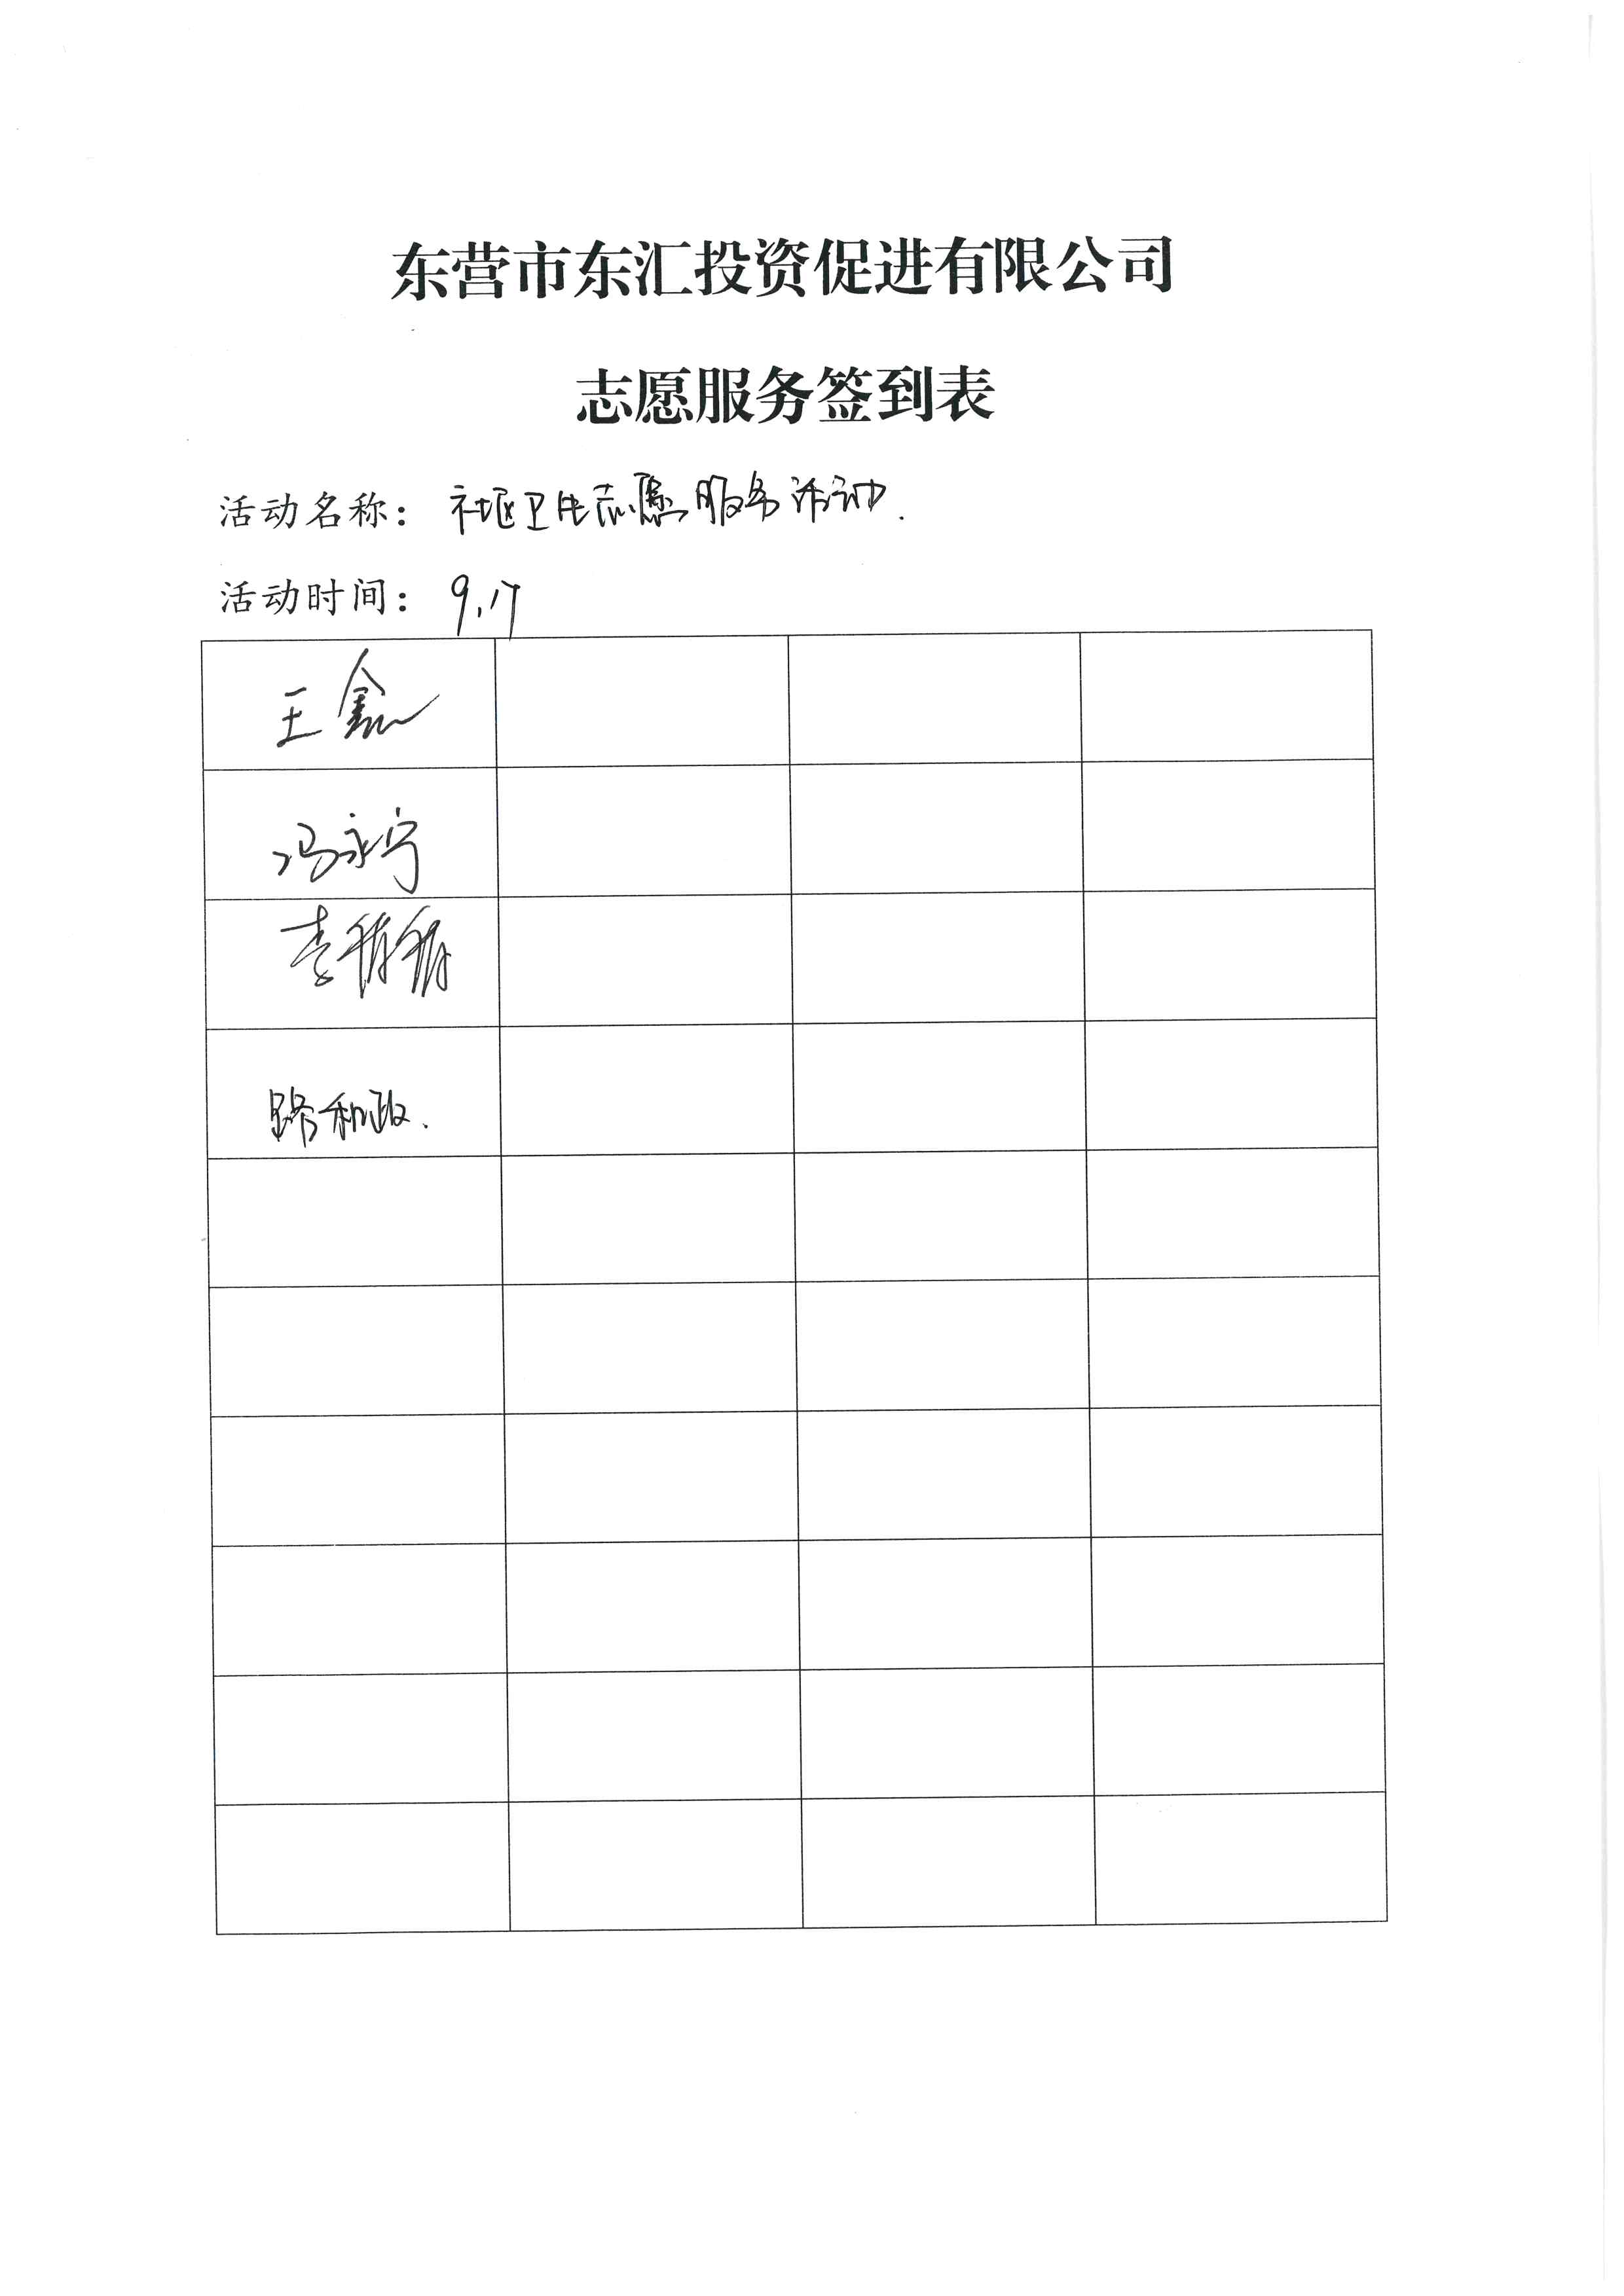 东营市东汇投资促进有限公司
志愿服务签到表
活动名称：社区卫生志愿服务活动.
活动时间：9.17
王鑫
冯永宁
李倩倩
路和政.